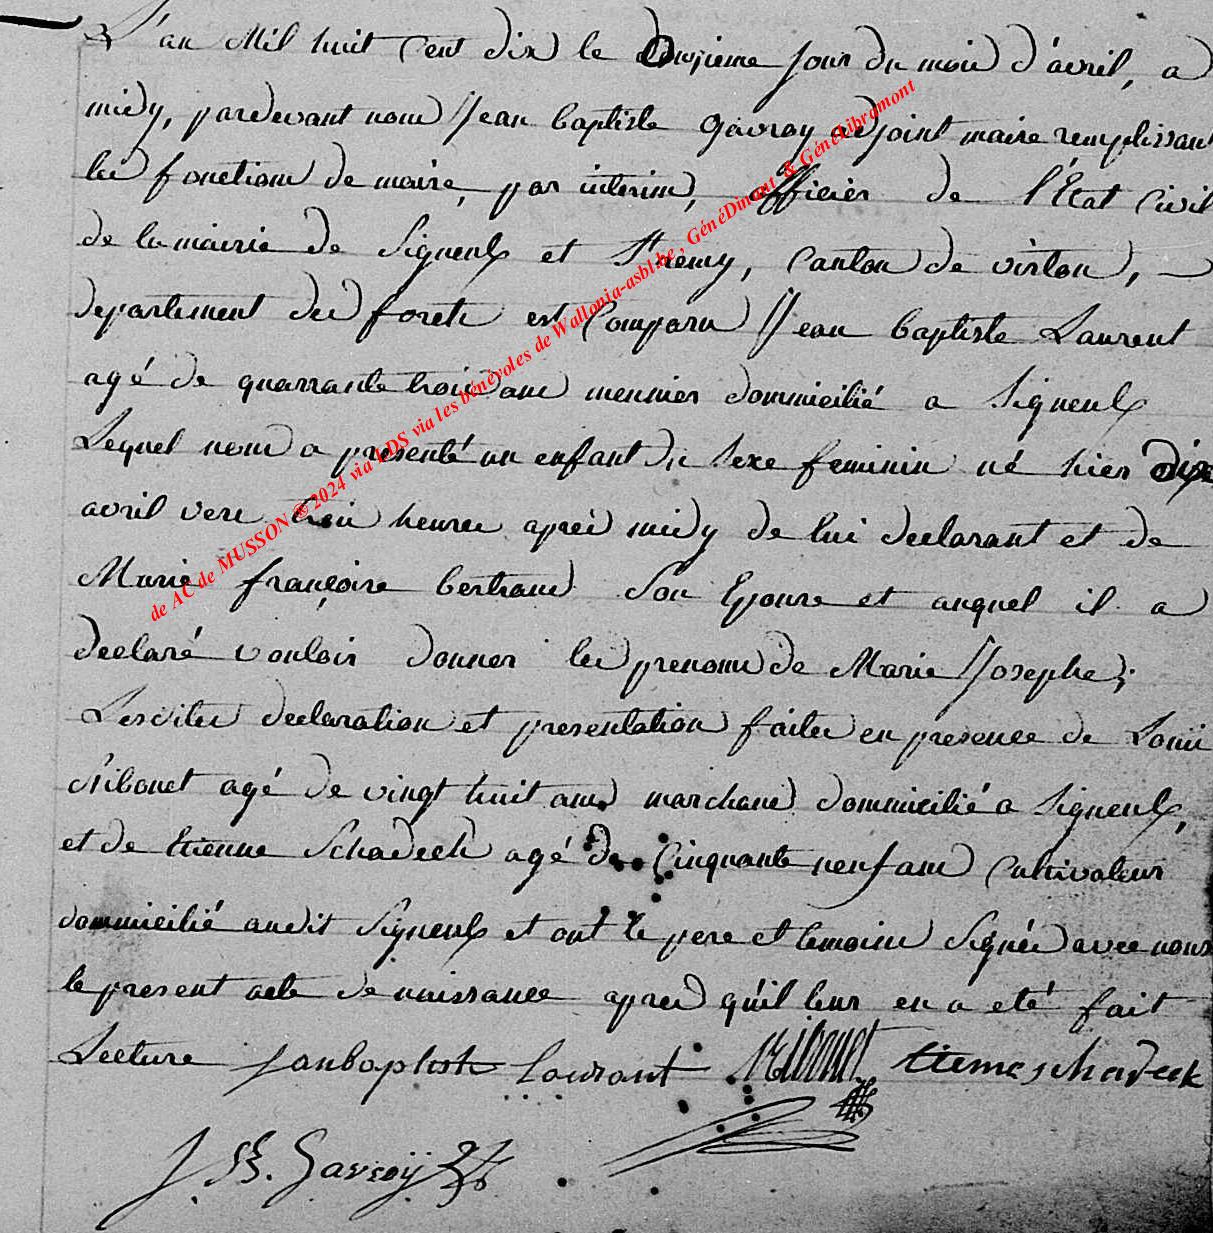 L'an Mil huit Cent dix le onzieme jour du mois d'avril, a
midy, pardevant nous Jean baptiste gavroy adjoint maire remplissant
les fonctions de maire, par interim, officier de l'Etat Civil
de la mairie de Signeulx et St remy, Canton de virton,
departement des forets est Comparu Jean baptiste Laurent
agé de quarrante trois ans meunier dommicilié a Signeulx
Lequel nous a presenté un enfant du Sexe feminin né hier dix
avril vers trois heures après midy de lui declarant et de
Marie françoise bertrand Son Epouse et auquel il a
declaré vouloir donner les prenoms de Marie Josephe;
Lescites declaration et presentation faites en presence de Louis
ribonet agé de vingt huit ans marchand dommicilié a Signeulx,
et de Etienne Schadeck agé de Cinquante neuf ans Cultivateur
dommicilié audit Signeulx et ont le pere et temoins Signés avec nous
le present acte de naissance apres qu'il leur en a eté fait
Lecture janbaptist Laurant Ribonet Etiene schadeck
J. B. Gavroÿ
de AC de MUSSON @ 2024 via LDS via les bénévoles de Wallonia-asbl.be, GénéDinant & GénéLibramont